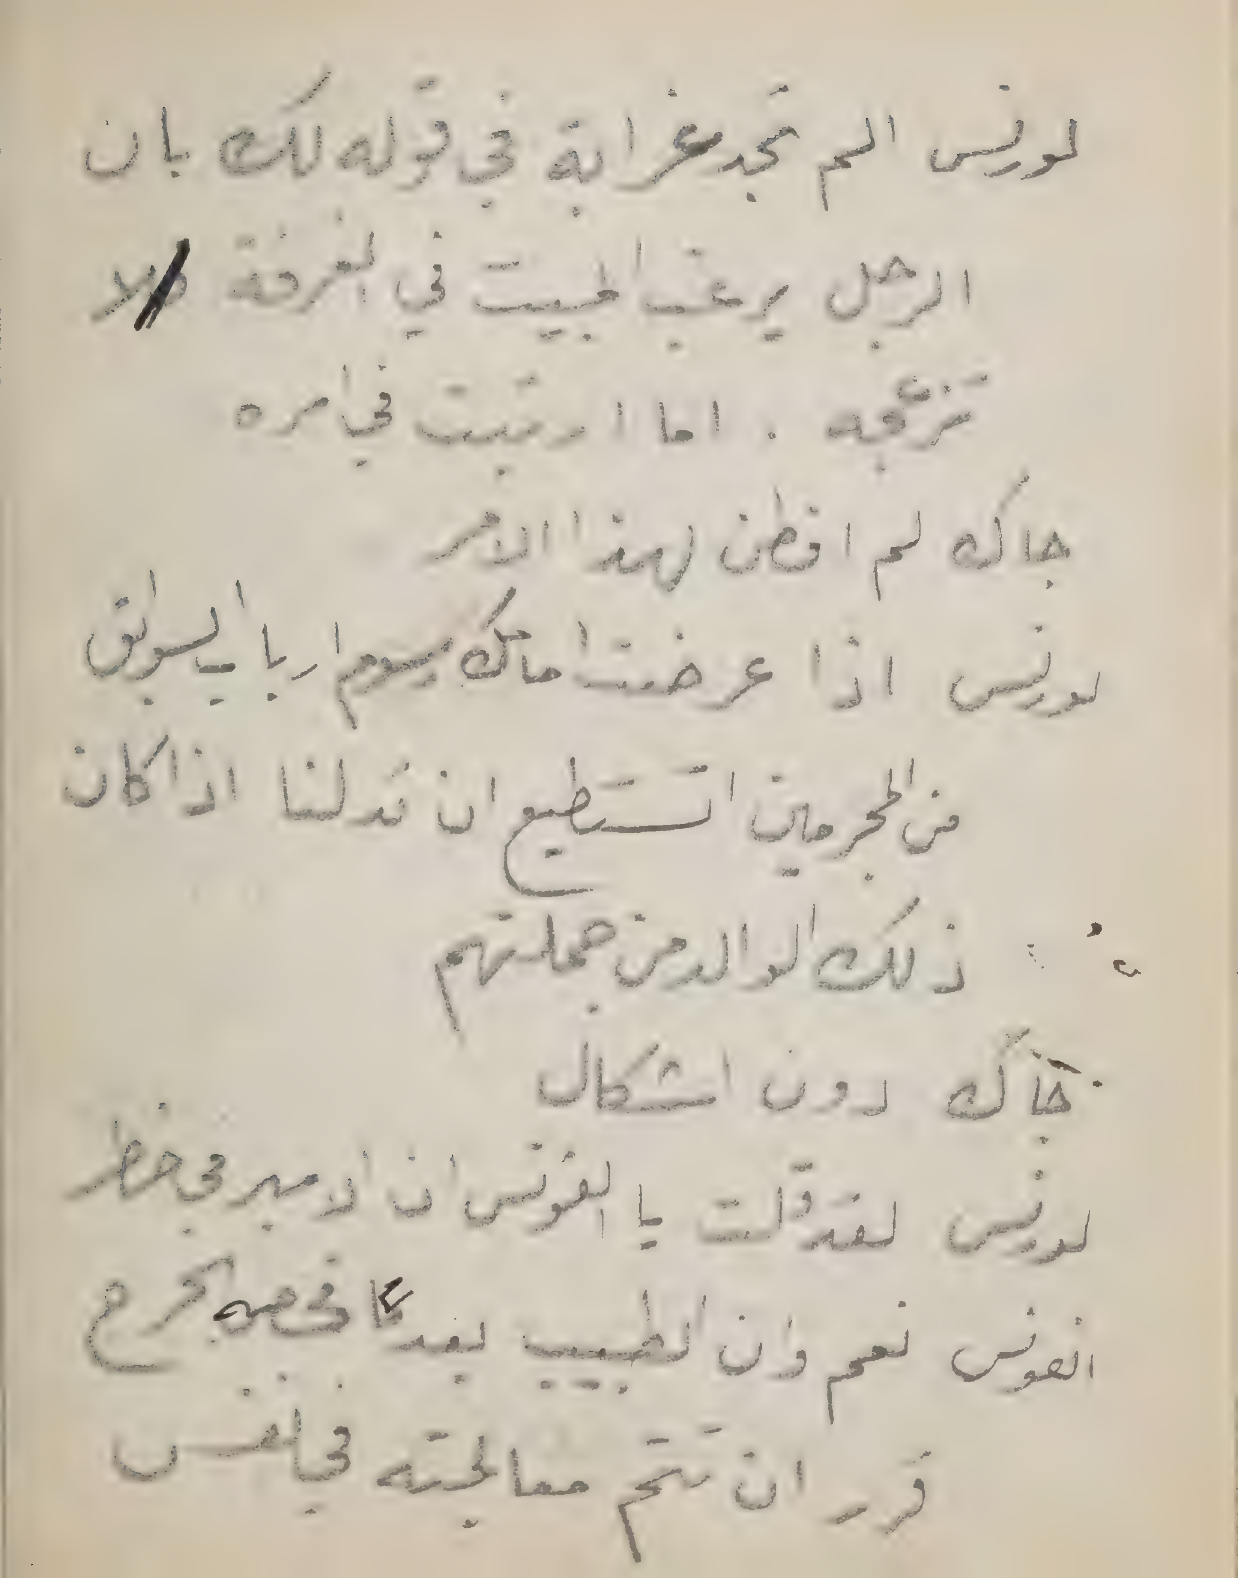 لورنس الم تجد غرابة في قوله لك بان
الرجل يرغب المبيت في الغرفة ولا
تزعجه . اما ارتبت في امره
جاك لم افطن لهذا الامر
لورنس اذا عرضت امامك رسوم ارباب السوابق
من المجرمين اتستطيع ان تدلنا اذا كان
ذلك الوالد من جملتهم
جاك دون اشكال
لورنس لقد قلت يا الفونس ان الامير في خطر
الفونس نعم وان الطبيب بعد فحصه الجرح
قرر ان تتم معالجته في نفس